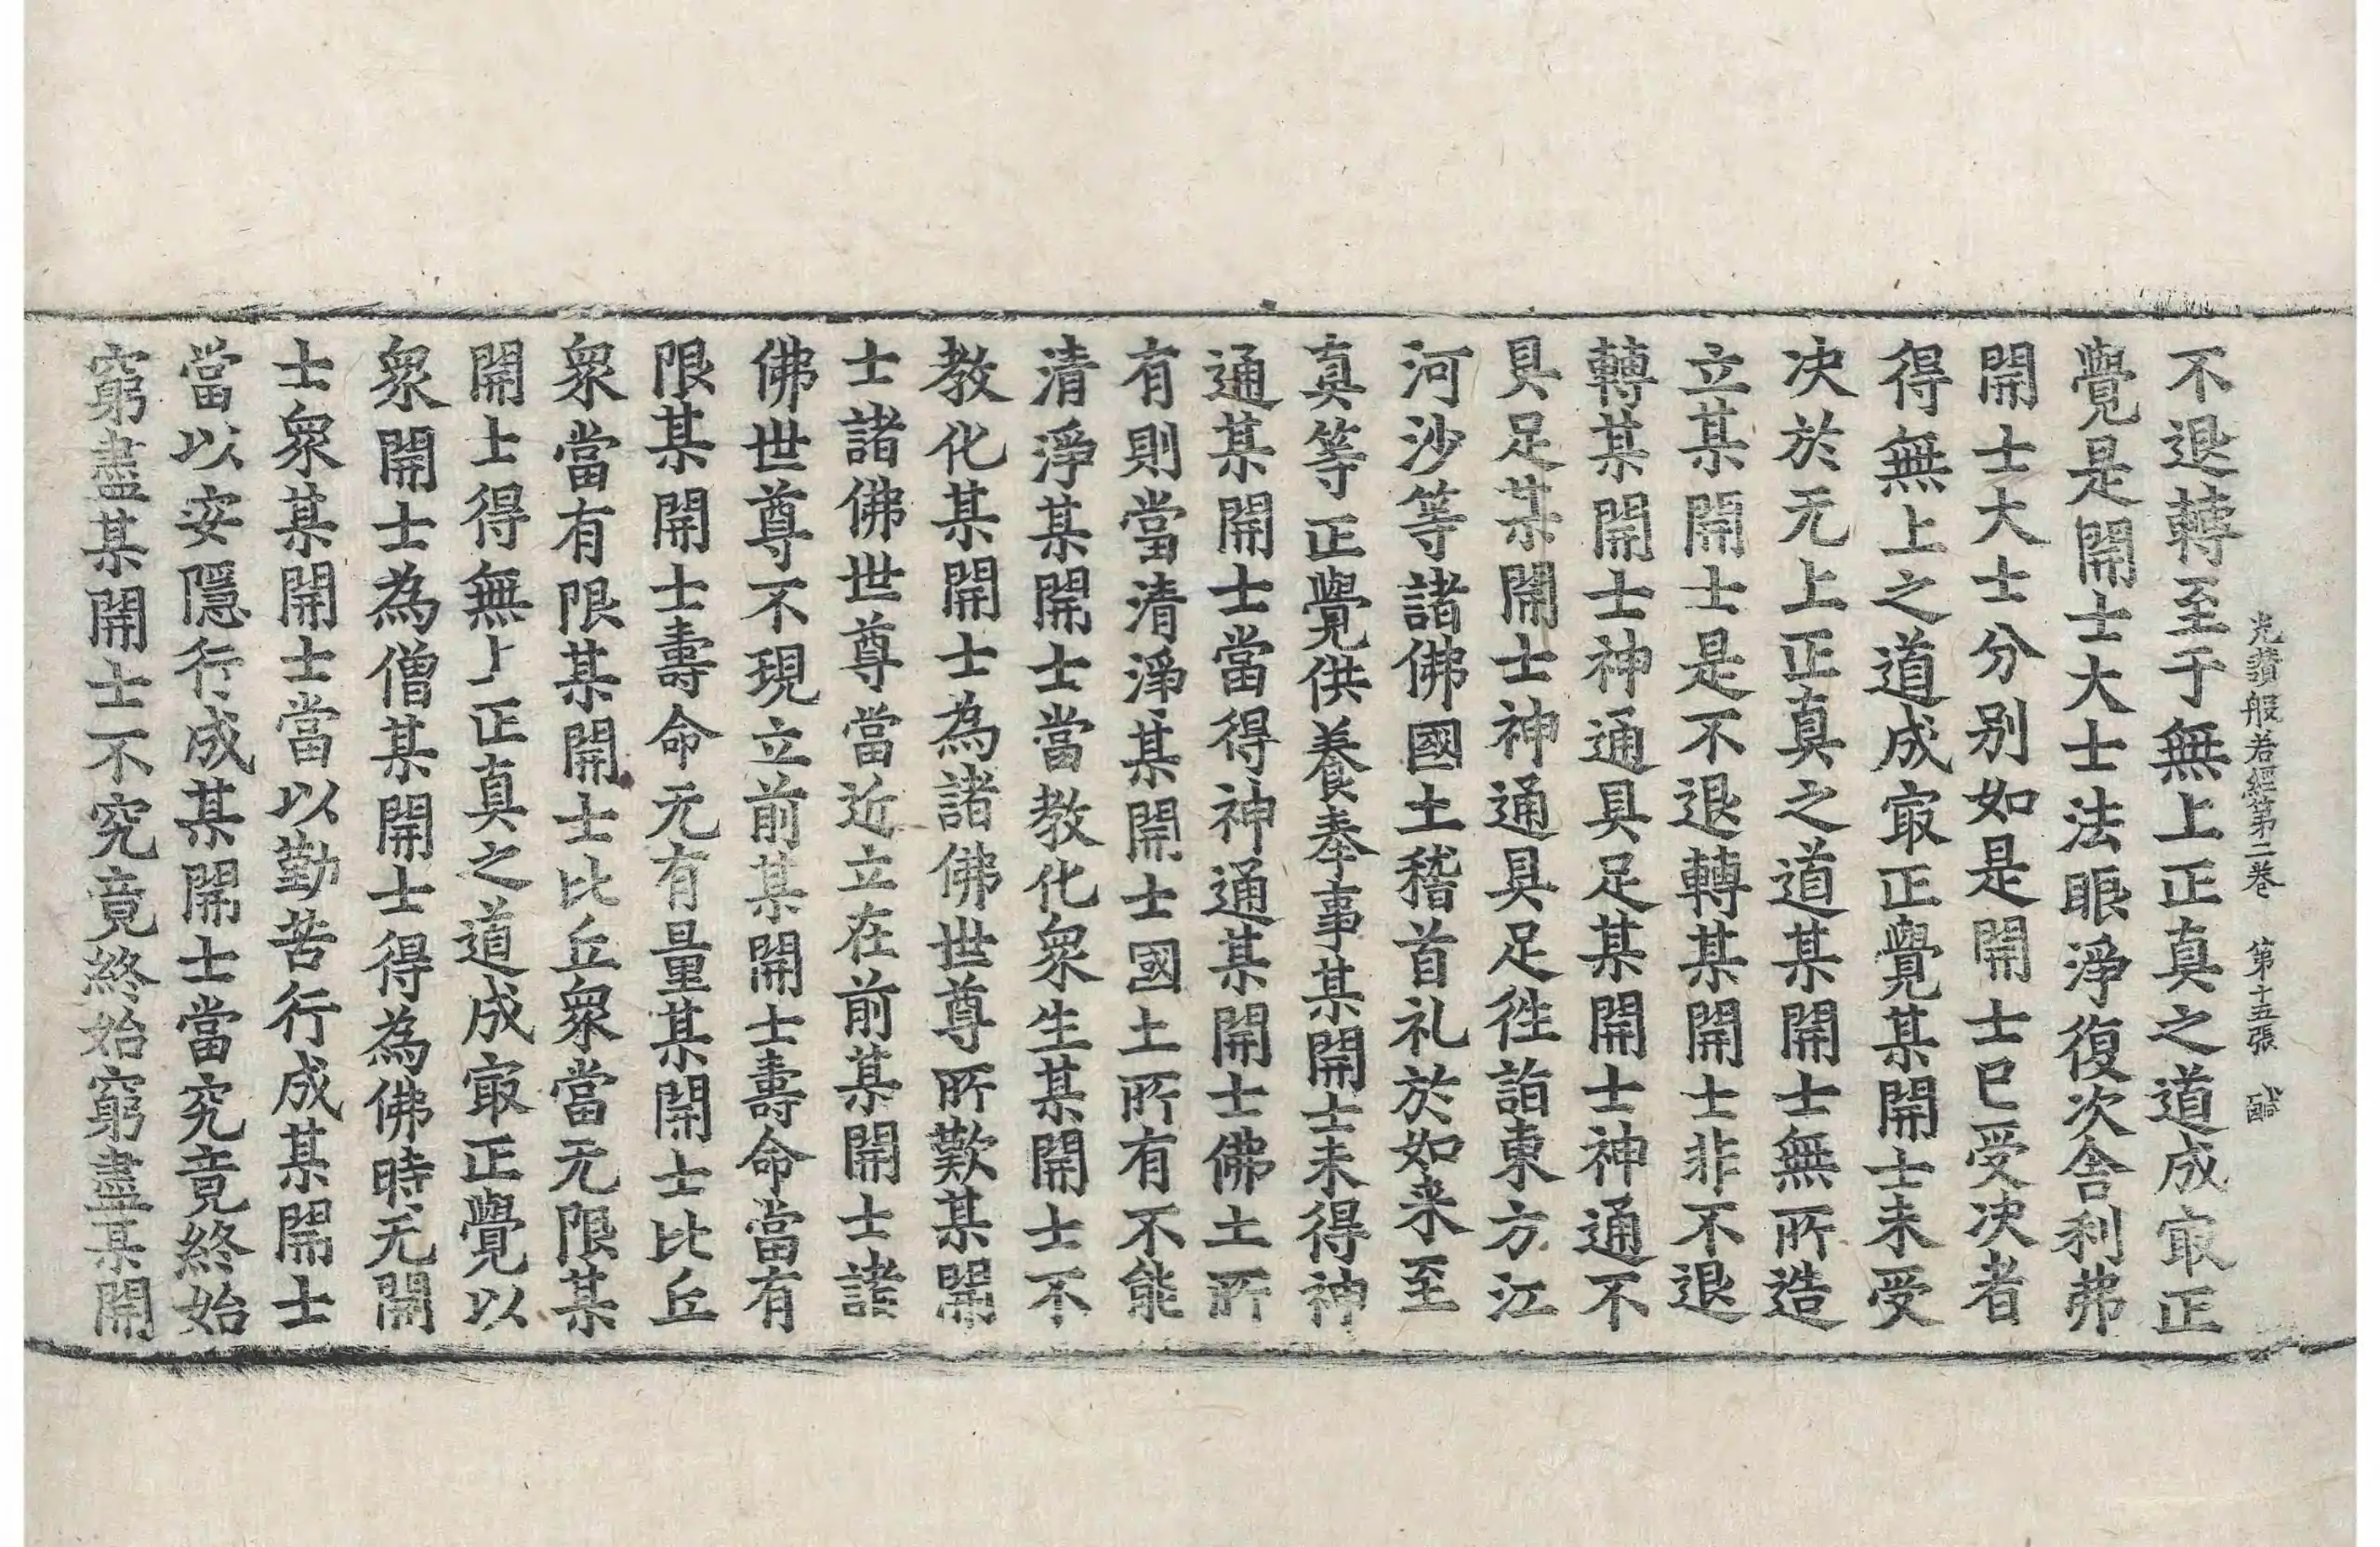 光讃般若經第二卷 第十五張 醎
不退轉至于無上正真之道成㝡正
覺是開士大士法眼淨復次舍利弗
開士大士分别如是開士已受决者
得無上之道成㝡正覺某開士未受
决於无上正真之道某開士無所造
立某開士是不退轉某開士非不退
轉某開士神通具足某開士神通不
具足某開士神通具足徃詣東方江
河沙等諸佛國土稽首礼於如来至
真等正覺供養奉事某開士未得神
通某開士當得神通某開士佛土所
有則當清淨某開士國土所有不能
清淨某開士當教化衆生某開士不
教化某開士為諸佛世尊所歎某開
士諸佛世尊當近立在前某開士諸
佛世尊不現立前某開士壽命當有
限某開士壽命无有量某開士比丘
衆當有限某開士比丘衆當无限某
開士得無上正真之道成㝡正覺以
衆開士為僧某開士得為佛時无開
士衆某開士當以勤苦行成某開士
當以安隱行成某開士當究竟終始
窮盡某開士不究竟終始窮盡某開